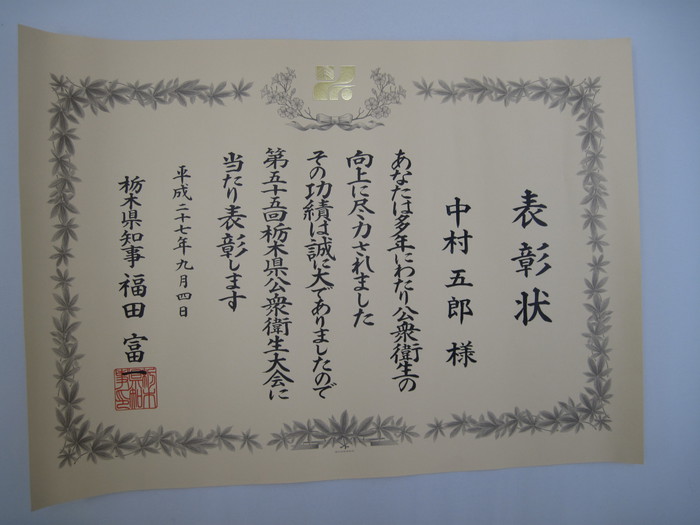 表彰状
中村五郎様
あなたは多年にわたり公衆衛生の
向上に尽力されました
その功績は誠に大でありましたので
第五十五回栃木県公衆衛生大会に
当たり表彰します
平成二十七年九月四日
栃木県知事福田富一